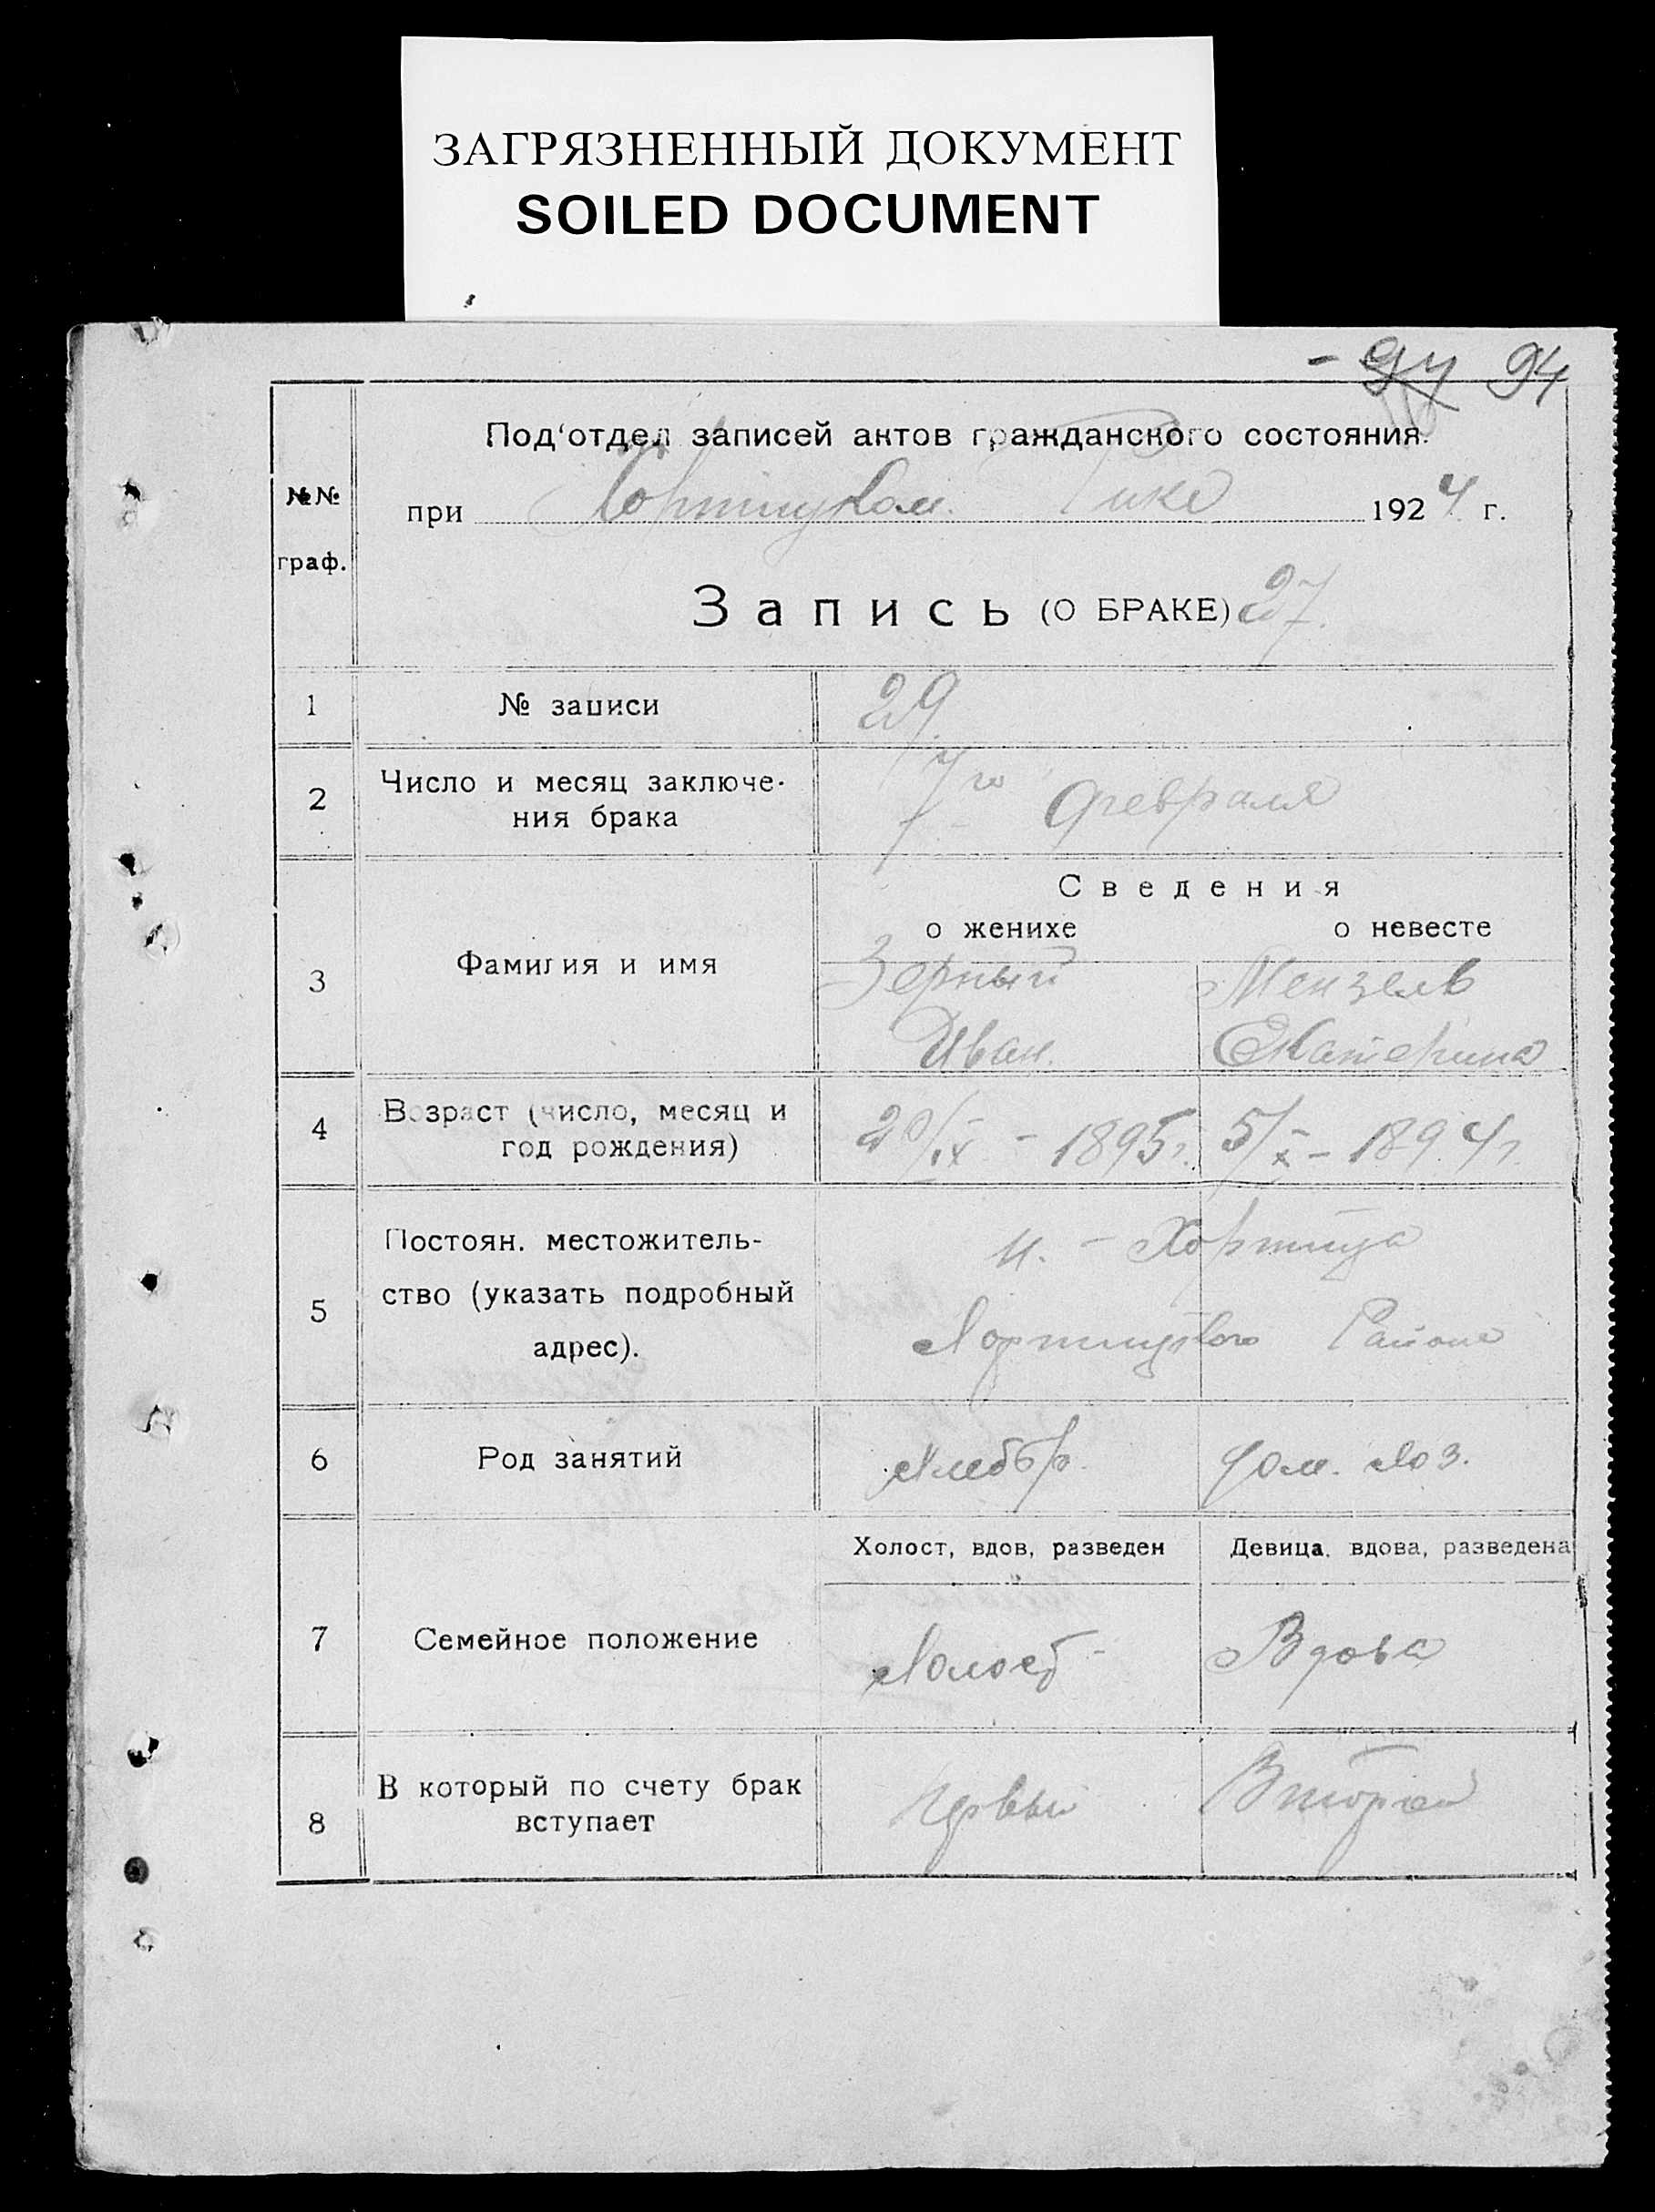 ЗАГРЯЗНЕННЫЙ ДОКУМЕНТ
SOILED DOCUMENT
94
№№ граф.
Под'отдел записей актов гражданского состояния
при Хортицком Рике 1924 г.
Запись (О БРАКЕ) 27.
1 № записи 29
2 Число и месяц заключе-
ния брака Февраля
Сведения
о женихе о невесте
3 Фамилия и имя Зерный Мензель
Иван. Екатерина
4 Возраст (число, месяц и
год рождения) 20/IX - 1895 г. 5/X - 1894 г.
5 Постоян. местожитель-
ство (указать подробный
адрес).
Хортица
Хортицкого Района
6 Род занятий Хлебор. Дом. Хоз.
Холост, вдов, разведен Девица, вдова, разведена
7 Семейное положение Холост Вдова
8 В который по счету брак
вступает Первый Второй